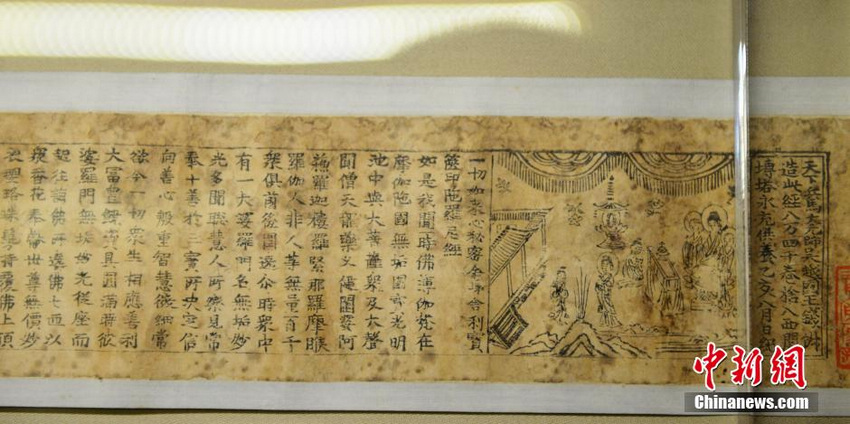 天下兵馬大元帥吳越國王錢俶
造此經八万四千卷捨入西關
塼塔永充供養乙亥八月日
一切如來心秘密全身舍利寶
篋印陀羅尼經
如是我聞一時佛薄伽梵在
摩伽陁國無垢園寶光明
池中與大菩薩衆及大聲
聞僧天龍藥叉健闥婆阿
蘇羅迦樓羅緊那羅摩睺
羅伽人非人等無量百千
衆俱前後圍遶尒時衆中
有一大婆羅門名無垢妙
光多聞聰慧人所樂見常
奉十善於三寶所決定信
向善心殷重智慧微細常
欲令一切衆生相應善利
大富豊饒資具圓滿時彼
婆羅門無垢妙光從座而
起往詣佛所遶佛七匝以
衆香花奉獻世尊無價妙
衣瓔珞珠鬘持覆佛上頂
中新网
Chinanews.com